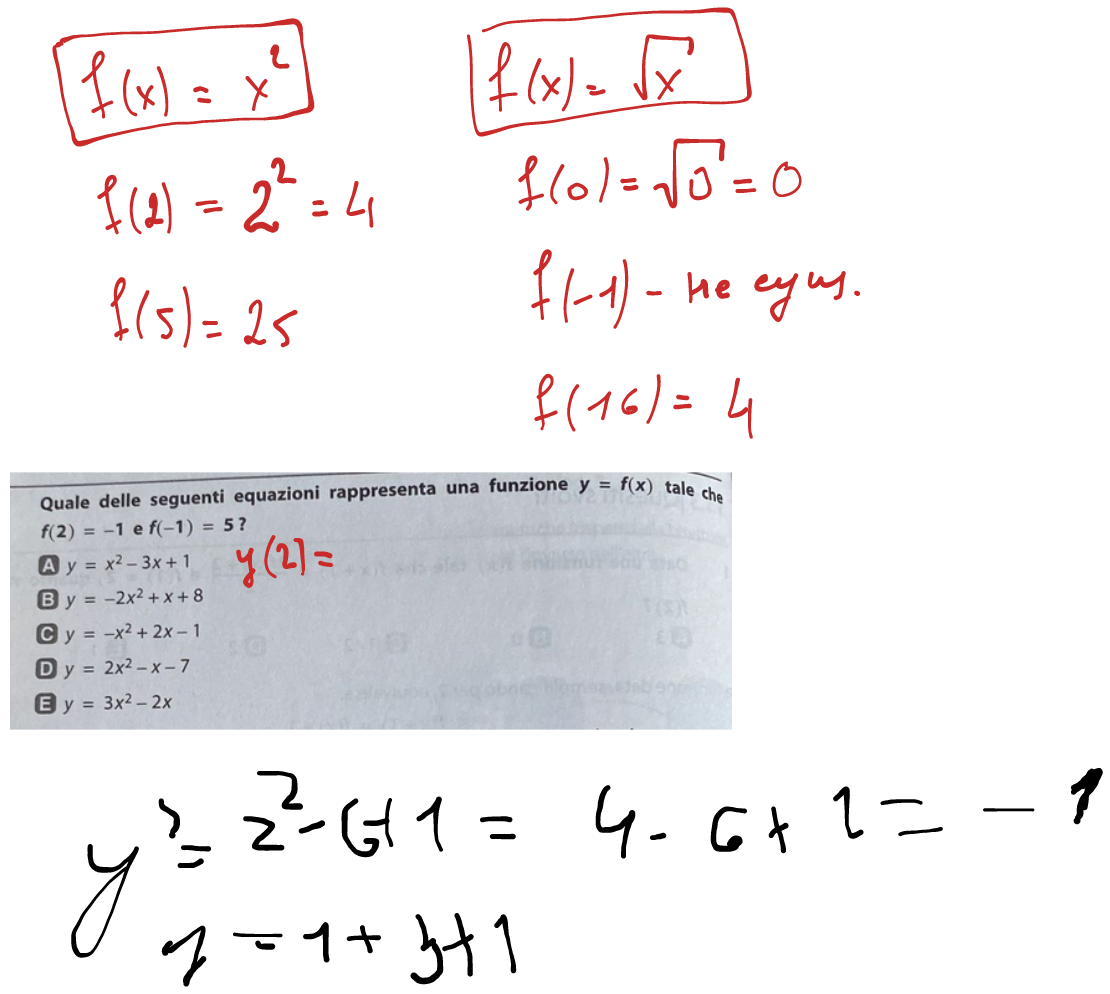 f(x) = x²
f(2) = 2² = 4
f(5) = 25
f(x) = √x
f(0) = √0 = 0
f(-1) - не сущ.
f(16) = 4
Quale delle seguenti equazioni rappresenta una funzione y = f(x) tale che
f(2) = –1 e f(–1) = 5?
A y = x² – 3x + 1 y(2) =
B y = –2x² + x + 8
C y = –x² + 2x – 1
D y = 2x² – x – 7
E y = 3x² – 2x
y = 2² - 6 + 1 = 4 - 6 + 1 = - 1
y = 1 + 3 + 1